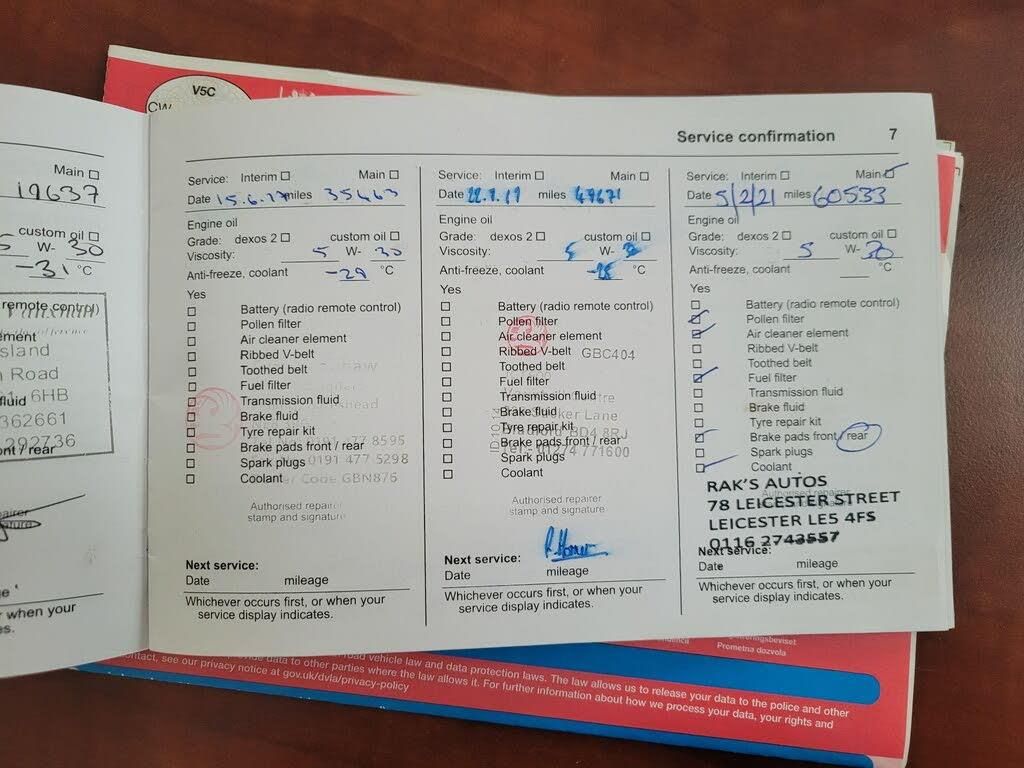 V5C
CW
Main
19637
custom oil
W- 30
-31 °C
remote control)
ement
sland
n Road
6HB
fluid
362661
292736
ont / rear
when your
es.
Service confirmation 7
Service: Interim Main
Date 15.6.17 miles 35463
Engine oil
Grade: dexos 2 custom oil
Viscosity: 5 W- 30
Anti-freeze, coolant -29 °C
Yes
Battery (radio remote control)
Pollen filter
Air cleaner element
Ribbed V-belt
Toothed belt
Fuel filter
Transmission fluid
Brake fluid
Tyre repair kit
0191 477 8595
Brake pads front / rear
Spark plugs
0191 477 5298
Coolant
Code GBN876
Authorised repairer
stamp and signature
Next service:
Date mileage
Whichever occurs first, or when your
service display indicates.
Service: Interim Main
Date miles 49671
Engine oil
Grade: dexos 2 custom oil
Viscosity: 5 W- 30
Anti-freeze, coolant °C
Yes
Battery (radio remote control)
Pollen filter
Air cleaner element
Ribbed V-belt
GBC404
Toothed belt
Fuel filter
Transmission fluid
Brake fluid
Lane
Tyre repair kit
Bradford BD4 8RJ
Brake pads front / rear
Tel:- 01274 771600
Spark plugs
Coolant
Authorised repairer
stamp and signature
Next service:
Date mileage
Whichever occurs first, or when your
service display indicates.
Service: Interim Main
Date 5/2/21 miles 60533
Engine oil
Grade: dexos 2 custom oil
Viscosity: 5 W- 30
Anti-freeze, coolant °C
Yes
Battery (radio remote control)
Pollen filter
Air cleaner element
Ribbed V-belt
Toothed belt
Fuel filter
Transmission fluid
Brake fluid
Tyre repair kit
Brake pads front / rear
Spark plugs
Coolant
RAK'S AUTOS
Authorised repairer
78 LEICESTER STREET
LEICESTER LE5 4FS
0116 2743557
Next service:
Date mileage
Whichever occurs first, or when your
service display indicates.
Prometna dozvola
provide data to other parties where the law allows it. road vehicle law and data protection laws. The law allows us to release your data to the police and other
contact, see our privacy notice at gov.uk/dvla/privacy-policy
For further information about how we process your data, your rights and